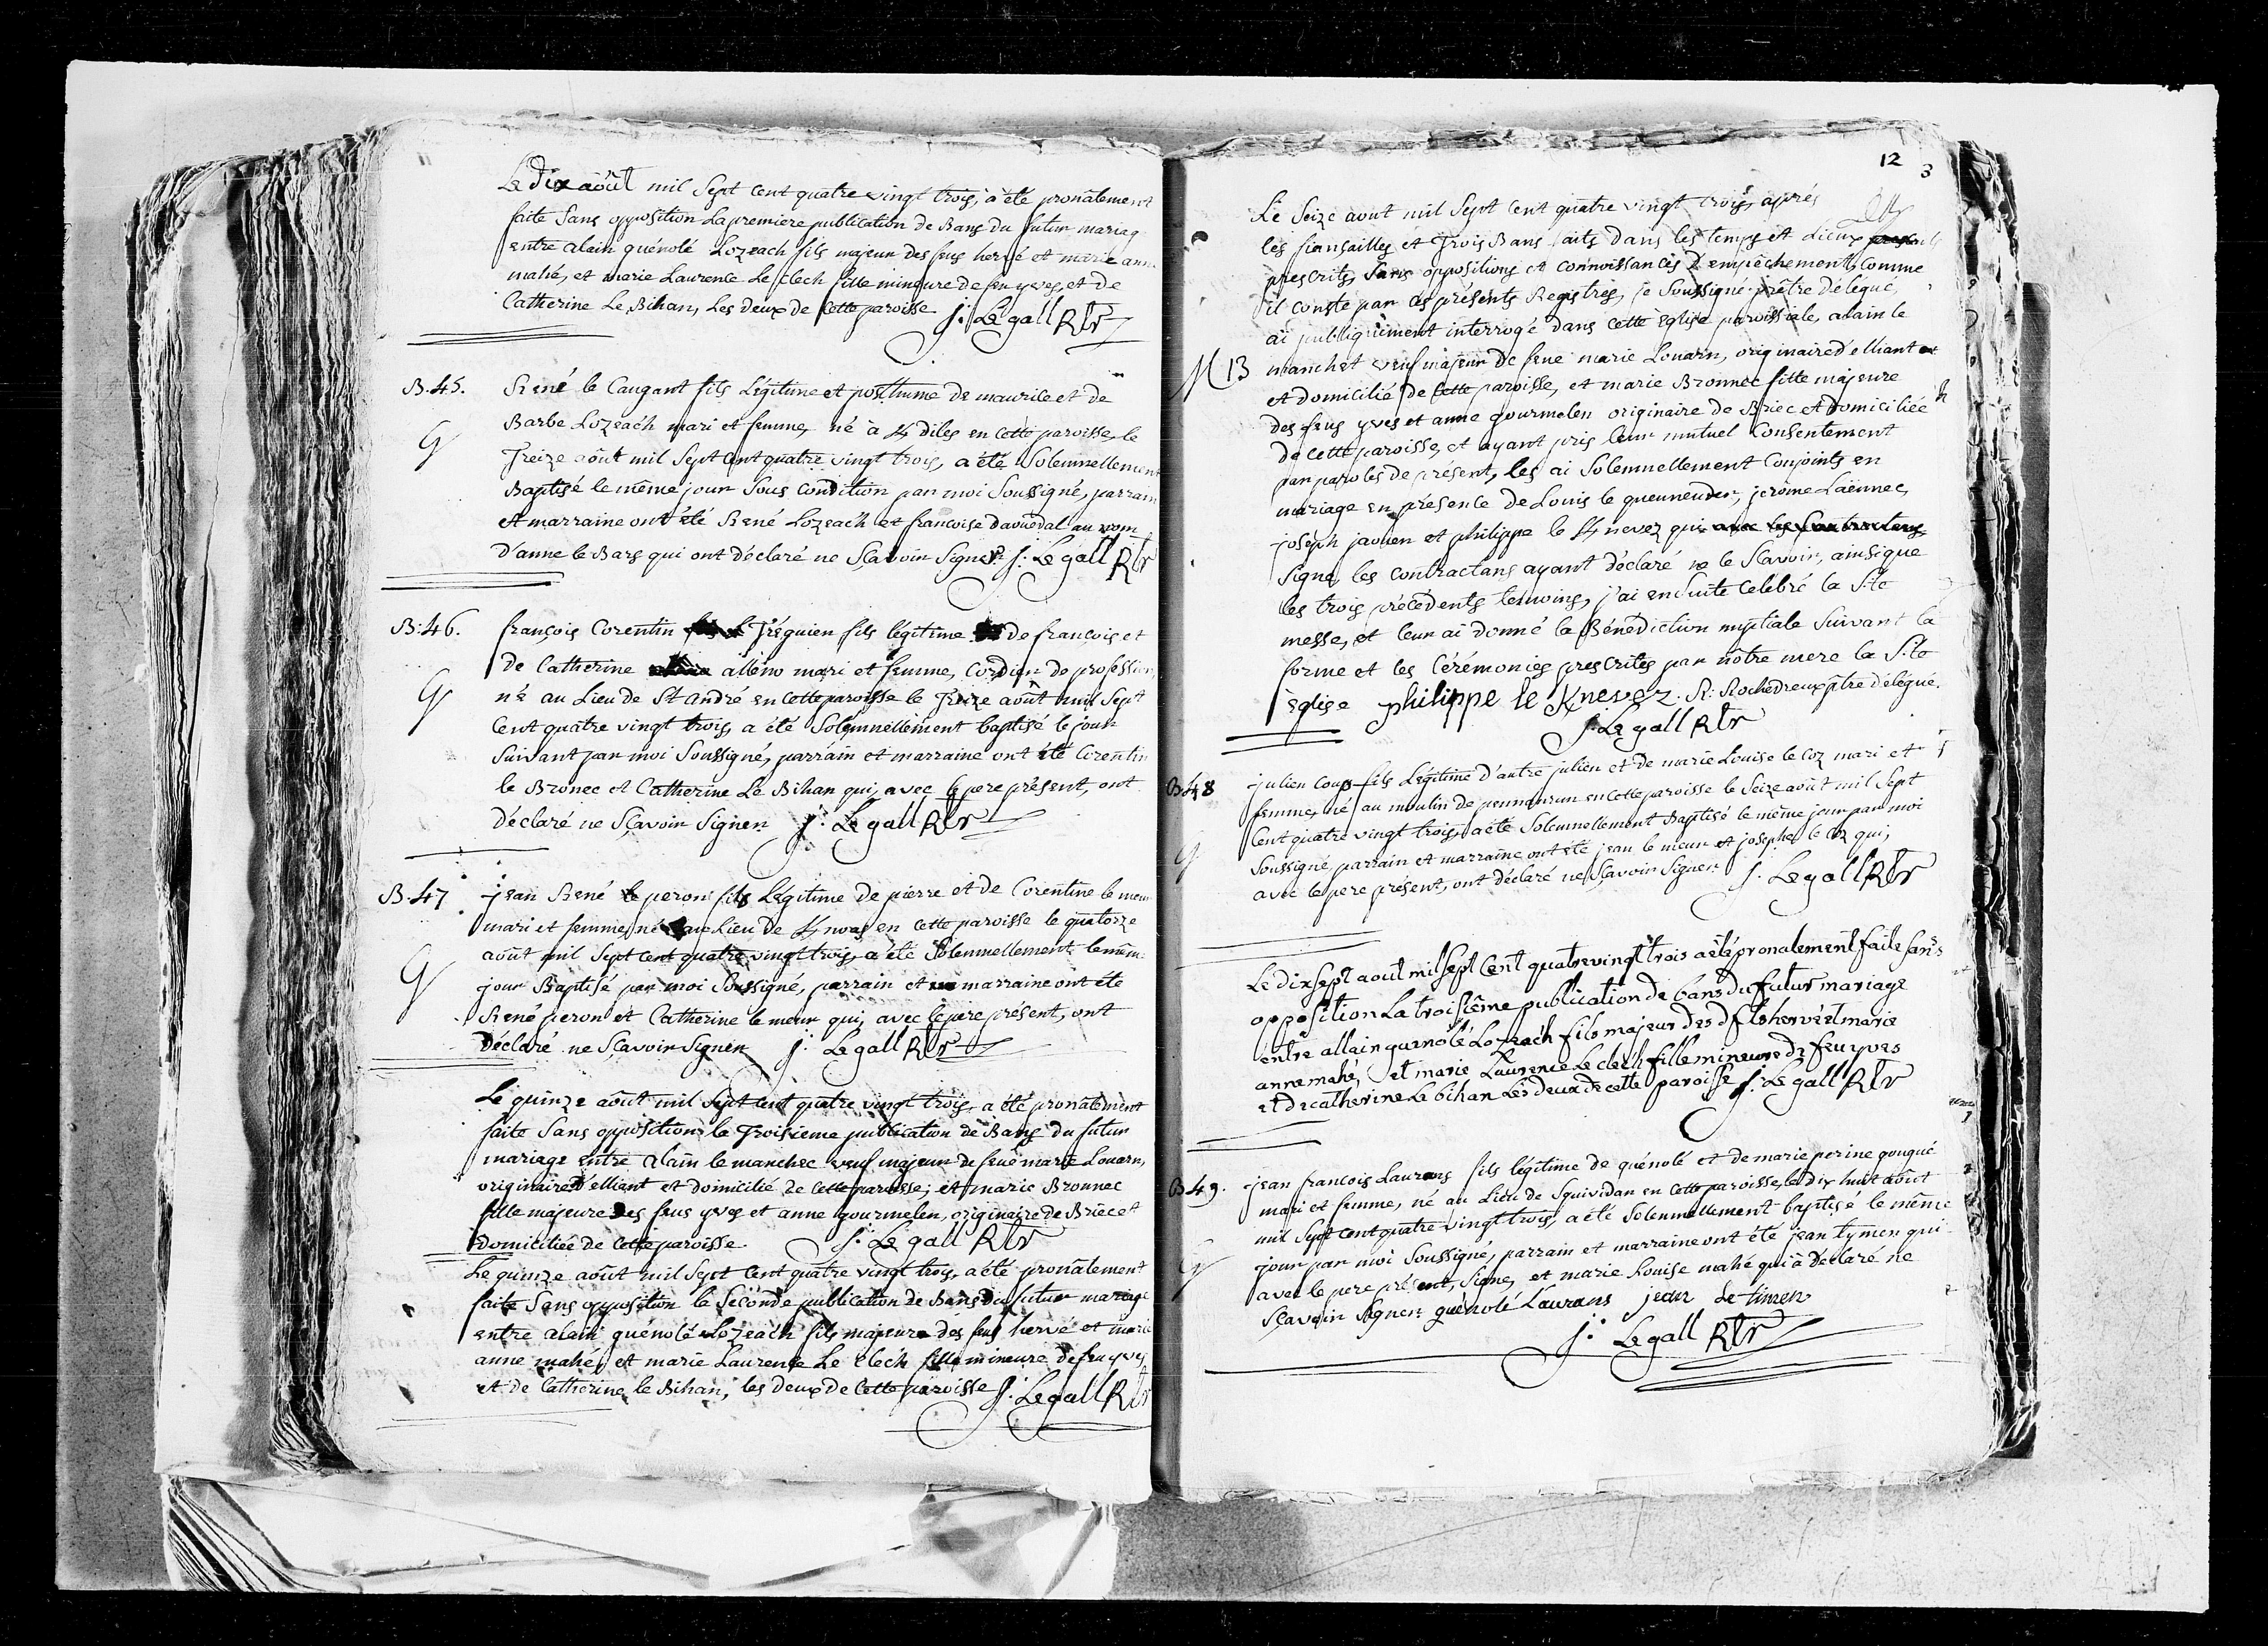 Le dix août mil Sept Cent quatre vingt trois, a été pronâlement
faite Sans opposition La premiere publication de Bans du futur mariag
entre alain guénolé Lozeach fils majeur des feus hervé et marie ann
mahé, et marie Laurence Le clech fille mineure de feu yves, et de
Catherine Le Bihan, Les deux de Cette paroisse J: Le gall Rtr
B.45. René le Caugant fils Légitime et posthume de maurice et de
G
Barbe Lozeach mari et femme, né à diles en Cette paroisse, le
Treize août mil Sept Cent quatre vingt trois, a été Solemnellement
Baptisé le même jour Sous Condition par moi Soussigné, parrain
et marraine ont été René Lozeach et francoise daouëdal au nom
d'anne le Bars qui ont déclaré ne Sçavoir Signer J: Le gall Rtr
B:46. françois Corentin Tréguien fils légitime de françois et
G
de Catherine alléno mari et femme, Cordier de profession,
né au Lieu de St andré en Cette paroisse le Treize août mil Sept
Cent quatre vingt trois, a été Solemnellement baptisé le jour
Suivant par moi Soussigné, parrain et marraine ont été Corentin
le Bronec et Catherine Le Bihan qui, avec le pere présent, ont
déclaré ne Sçavoir Signer J: Le gall Rtr
B.47 jean René le peron fils Légitime de pierre et de Corentine le meur
G
mari et femme, né au Lieu de en Cette paroisse le quatorze
août mil Sept Cent quatre vingt trois, a été Solemnellement le mêm
jour Baptisé par moi Soussigné, parrain et marraine ont été
René peron et Catherine le meur qui, avec le pere présent, ont
Déclaré ne Sçavoir Signer J: Le gall Rtr
Le quinze août mil Sept Cent quatre vingt trois, a été pronâlement
faite Sans opposition la Troisieme publication de Bans du futur
mariage entre alain le manchec veuf majeur de feuë marie Louarn,
originaire d'elliant et domicilié de Cette paroisse; et marie Bronnec
fille majeure Des feus yves et anne gourmelen, originaire de Briec et
domiciliée de Cette paroisse J: Le gall Rtr
Le quinze août mil Sept Cent quatre vingt trois, a été pronâlement
faite Sans opposition la Seconde publication de Bans du futur mariage
entre alain guénolé Lozeach fils majeure des feus hervé et marie
anne mahé, et marie Laurence Le clech fille mineure de feu yves
et de Catherine le Bihan, les deux de Cette paroisse J: Le gall Rtr
12
3
Le Seize aout mil Sept Cent quatre vingt trois, aprés
les fiansailles et Trois Bans faits dans les temps et Lieux
prescrits, Sans oppositions et Connoissances d'empêchement, Comme
il conste par Ces présents Registres, je Soussigné prêtre délégué,
ai publiquement interrogé dans Cette Eglise paroissiale, alain le
M 13 manchet veuf majeur de feue marie Louarn, originaire d'elliant et
et domicilié de Cette paroisse, et marie Bronnec fille majeure
des feus yves et anne gourmelen originaire de Briec et domiciliée
de Cette paroisse, et ayant pris leur mutuel Consentement
par paroles de présent, les ai Solemnellement Conjoints en
mariage en présence de Louis le queuneuder, jerôme Laënnec,
joseph jaouen et philippe le nevez qui avec les Contractans
Signe, les contractans ayant déclaré ne le Scavoir, ainsi que
les trois précédents temoins, j'ai ensuite Celebré la Ste
messe, et leur ai donné la Bénédiction nuptiale Suivant la
forme et les Cérémonies prescrites par nôtre mere la Ste
Eglise philippe le Knevez. R: Rochedreux ptre délégué.
J: Le gall Rtr
B 48 julien Coup fils Légitime d'autre julien et de marie Louise le Coz mari et
G
femme, né au moulin de pennanrun en Cette paroisse le Seize août mil Sept
Cent quatre vingt trois, a été Solemnellement Baptisé le même jour par moi
Soussigné, parrain et marraine ont été jean le meur et josephe le Coz qui,
avec le pere présent, ont déclaré ne Sçavoir Signer J: Le gall Rtr
Le dix sept aout mil sept Cent quatre vingt trois a été pronalement faite sans
opposition La troisiême publication de bans du futur mariage
entre allain guenolé Lozeach fils majeur des dfts hervé et marie
anne mahé, et marie Laurence Le cléch fille mineure de feu yves
et de catherine Le bihan Les deux de cette paroisse J: Le gall Rtr
B 49. jean francois Laurans fils légitime de guénolé et de marie perine gougué
G
mari et femme, né au Lieu de Squividan en Cette paroisse, le dix huit août
mil Sept Cent quatre vingt trois, a été Solemnellement baptisé le même
jour par moi Soussigné, parrain et marraine ont été jean tymen qui
avec le pere présent, Signe, et marie Louise mahé qui à déclaré ne
Sçavoir Signer guénolé Laurans jean Le timen
J: Le gall Rtr